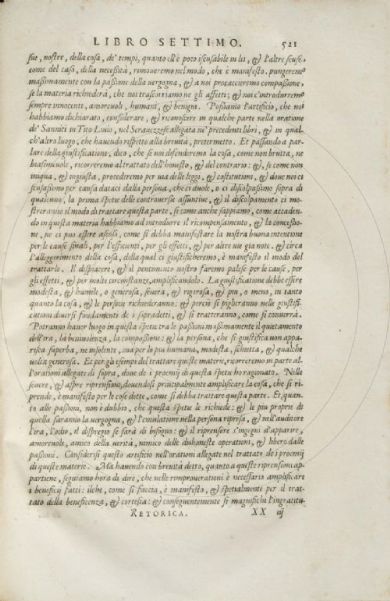 LIBRO SETTIMO. 521
sue, nostre, della cosa, de' tempi, quanto ell'è poco iscusabile in lui, & l'altre scuse,
come del caso, della necessità, rimoueremo nel modo, che è manifesto, pungeremo
massimamente con la passione della uergogna, & a noi procacceremo compassione,
se la materia richiederà, che noi trascorriamo ne gli affetti; & noi c'introdurremo
sempre innocenti, amoreuoli, humani, & benigni. Possiamo l'artificio, che noi
habbiamo dichiarato, considerare, & riconoscere in qualche parte nella oratione
de' Sanniti in Tito Liuio, nel allegata ne' precedenti libri, & in qual
ch'altro luogo, che hauendo rispetto alla breuità, pretermetto. Et passando a par-
lare della giustificatione, dico, che se noi difenderemo la cosa, come non brutta, ne
biasimeuole, ricorreremo al trattato dell'honesto, & del contrario: &, se come non
iniqua, & ingiusta, procederemo per uia delle leggi, & costitutioni, & doue noi ci
scusassimo per causa dataci dalla persona, che ci duole, o ci discolpassimo sopra di
qualcuno, la prima spetie delle controuersie assuntiue, & il discolpamento ci mo-
streranno il modo di trattare questa parte, si come anche sappiamo, come accaden-
do in questa materia habbiamo ad introdurre il ricompensamento, & la concessio-
ne, ne ci può essere ascoso, come si debba manifestare la nostra buona intentione
per le cause finali, per l'efficienti, per gli effetti, & per altre uie già note, & circa
l'alleggerimento della cosa, della qual ci giustificheremo, è manifesto il modo del
trattarlo. Il dispiacere, & il pentimento nostro faremo palese per le cause, per
gli effetti, & per molte circonstanze, amplificandolo. La giustificatione debbe essere
modesta, & humile, o generosa, sicura, & rigorosa, & più, o meno, in tanto
quanto la cosa, & le persone richiederanno: perciò si piglieranno nelle giustifi-
cationi diuersi fondamenti de i sopradetti, & si tratteranno, come si conuerrà.
Potranno hauer luogo in questa spetie tra le passioni massimamente il quietamento
dell'ira, la beniuolenza, la compassione: & la persona, che si giustifica non appa-
risca superba, ne insolente, ma per lo più humana, modesta, schietta, & qualche
uolta generosa. Et per gli essempi del trattare queste materie, ricorreremo in parte al-
l'orationi allegate di sopra, doue de i proemij di questa spetie ho ragionato. Nelle
seuere, & aspre riprensioni, douendosi principalmente amplificare la cosa, che si ri-
prende, è manifesto per le cose dette, come si debba trattare questa parte. Et, quan-
to alle passioni, non è dubbio, che questa spetie le richiede: & le più proprie di
quella saranno la uergogna, & l'emulatione nella persona ripresa, & nell'auditore
l'ira, l'odio, et dispregio se sarà di bisogno: & il riprensore s'ingegni d'apparire,
amoreuole, amico della uerità, nimico delle dishoneste operationi, & libero dalle
passioni. Considerisi questo artificio nell'orationi allegate nel trattato de i proemij
di queste materie. Ma hauendo con breuità detto, quanto a queste riprensioni ap-
partiene, seguiamo hora di dire, che nelle rimprouerationi è necessario amplificare
i beneficij fatti: ilche, come si faccia, è manifesto, & spetialmente per il trat-
tato della beneficenza, & cortesia: & conseguentemente si magnifichi l'ingratitu-
RETORICA. XX iij